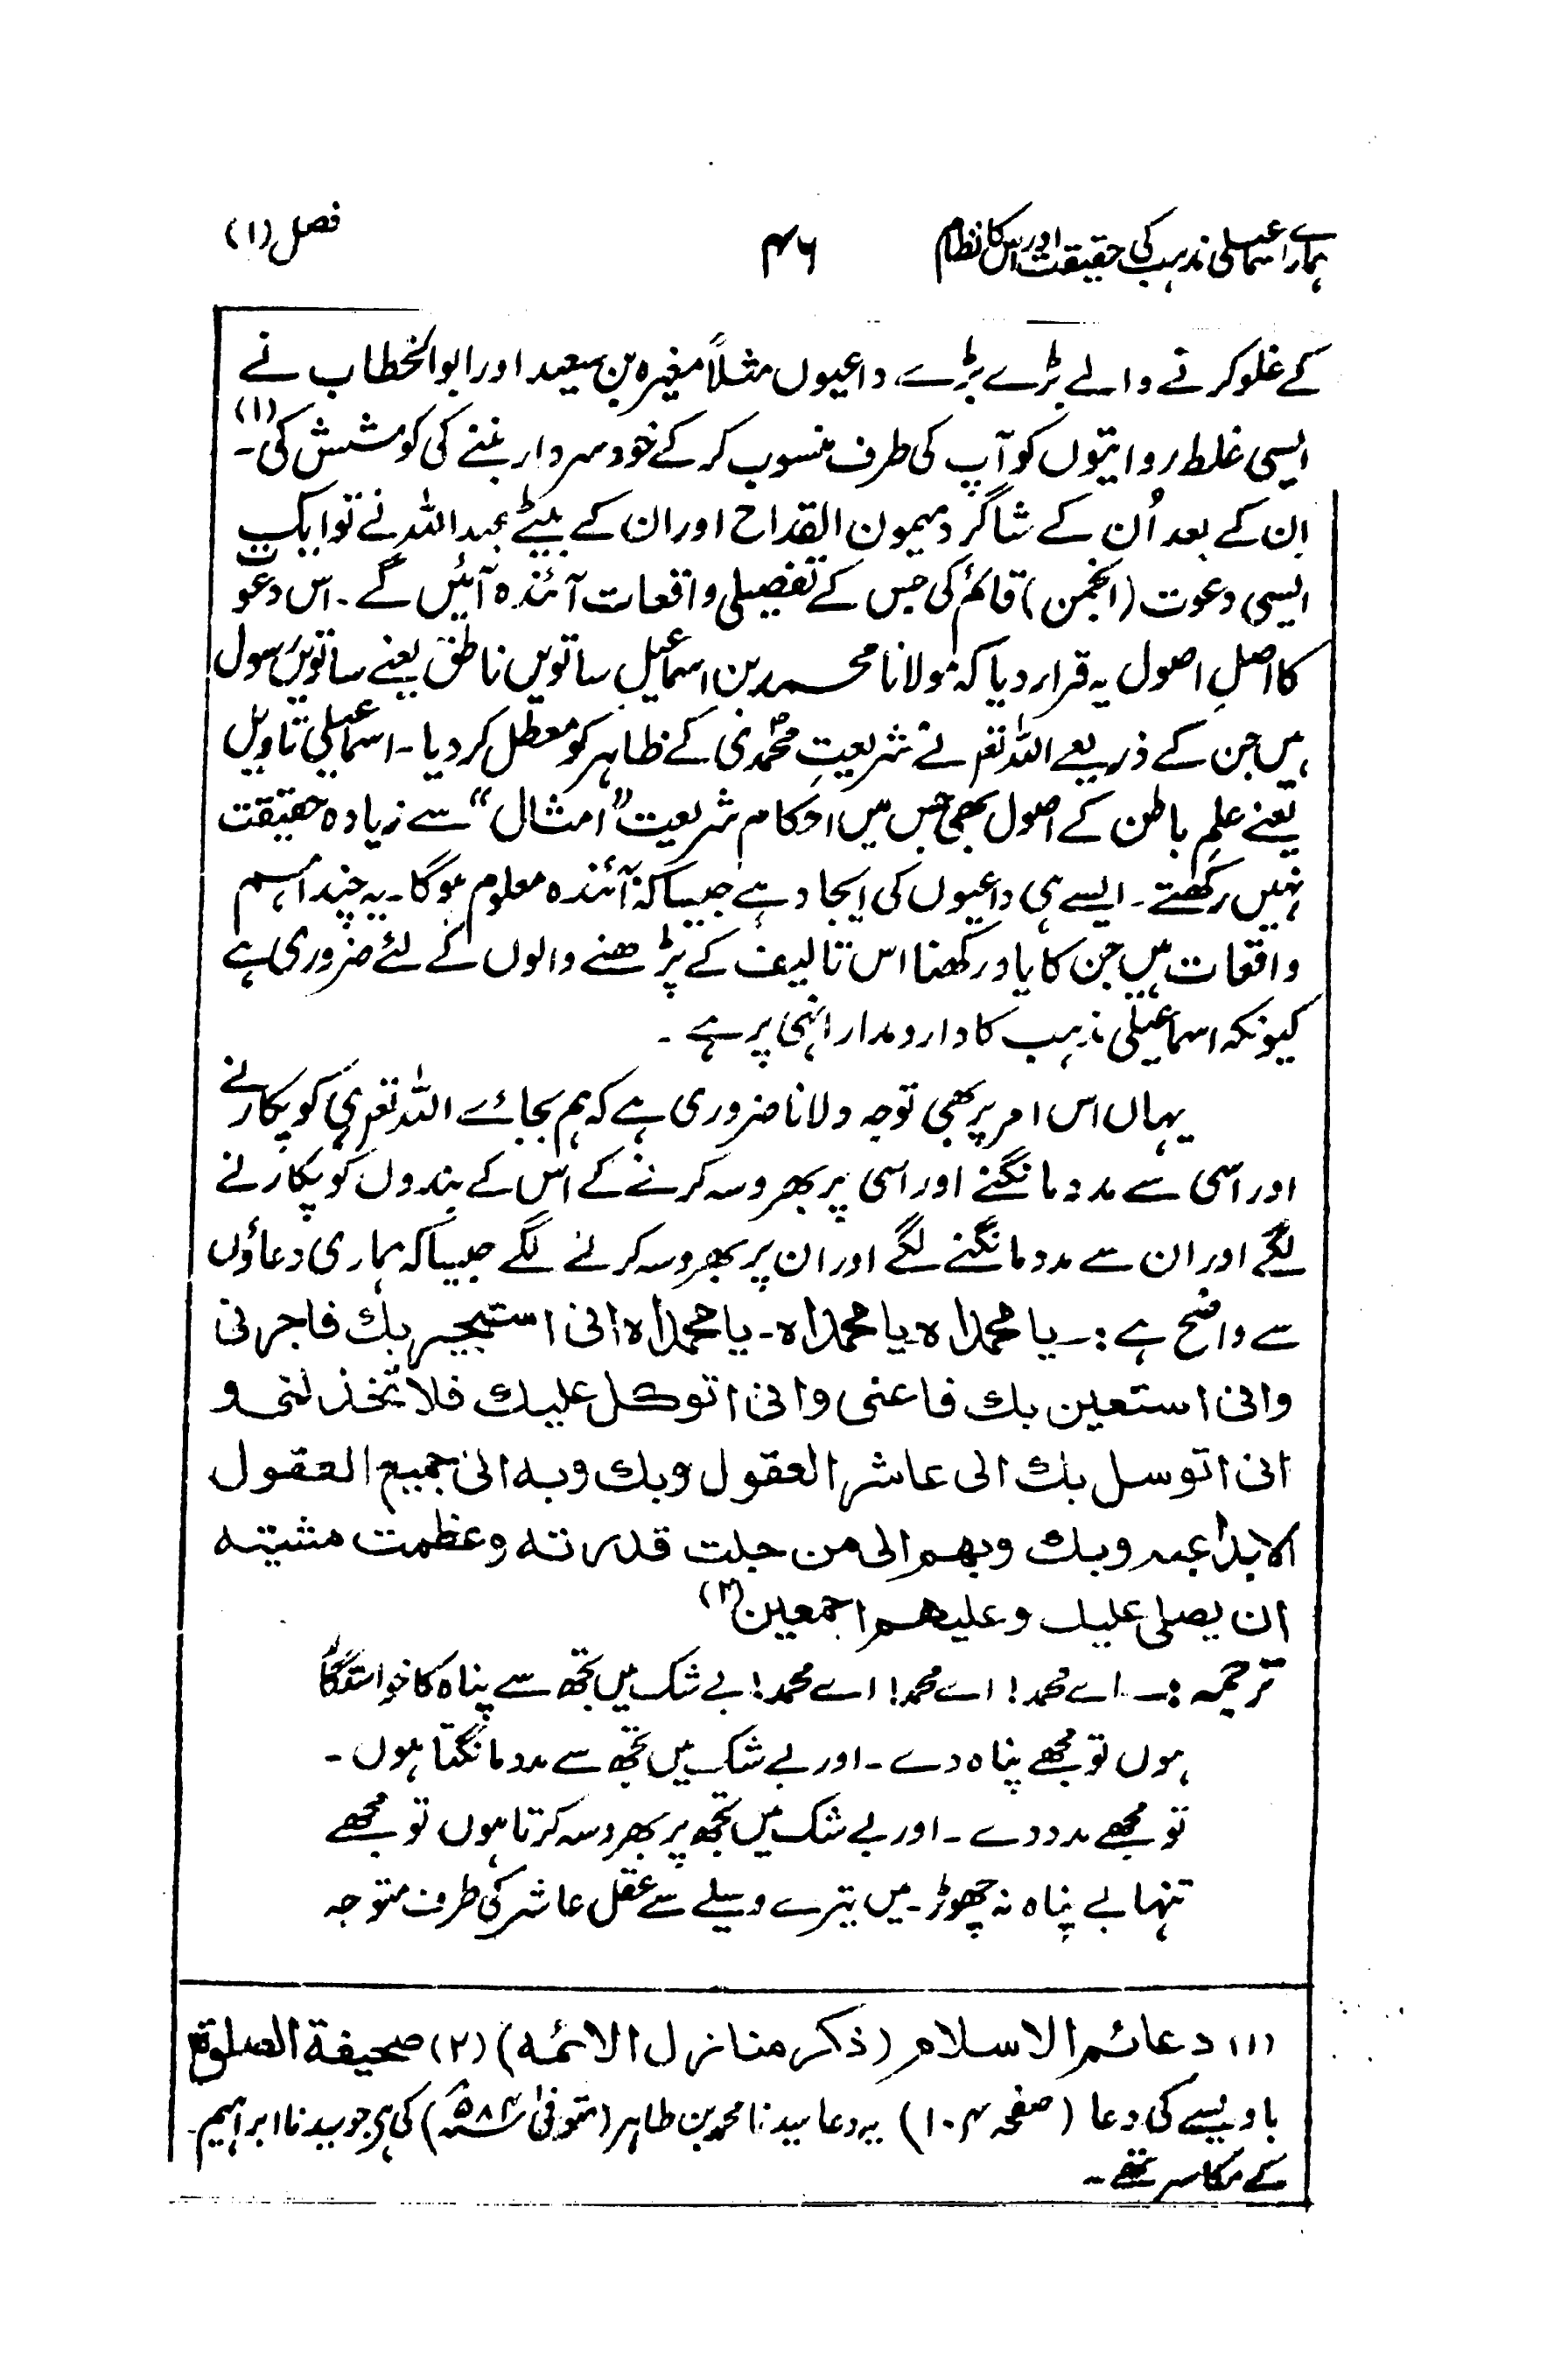 ہمارے اسماعیلی مذہب کی حقیقت اور اس کا نظام ۴۶ فصل (۱)
کے غلو کرنے والے بڑے بڑے داعیوں مثلاً مغیرہ بن سعید اور ابوالخطاب نے
ایسی غلط روایتوں کو آپ کی طرف منسوب کر کے خود سردار بننے کی کوشش کی۔(۱)
ان کے بعد اُن کے شاگرد میمون القداح اور ان کے بیٹے عبداللہ نے تو ایک
ایسی دعوت (انجمن) قائم کی جس کے تفصیلی واقعات آئندہ آئیں گے۔ اس دعوت
کا اصلِ اصول یہ قرار دیا کہ مولانا محمد بن اسماعیل ساتویں ناطق یعنے ساتویں رسول
ہیں جن کے ذریعے اللہ تعم نے شریعتِ محمدؐی کے ظاہر کو معطل کر دیا۔ اسماعیلی تاویل
یعنے علمِ باطن کے اصول بھی جس میں احکامِ شریعت "امثال" سے زیادہ حقیقت
نہیں رکھتے۔ ایسے ہی داعیوں کی ایجاد ہے جیسا کہ آئندہ معلوم ہوگا۔ یہ چند اہم
واقعات ہیں جن کا یاد رکھنا اس تالیف کے پڑھنے والوں کے لئے ضروری ہے
کیونکہ اسماعیلی مذہب کا دار و مدار انہی پر ہے۔
یہاں اس امر پر بھی توجہ دلانا ضروری ہے کہ ہم بجائے اللہ تعم ہی کو پکارنے
اور اسی سے مدد مانگنے اور اسی پر بھروسہ کرنے کے اس کے بندوں کو پکارنے
لگے اور ان سے مدد مانگنے لگے اور ان پر بھروسہ کرنے لگے جیسا کہ ہماری دعاؤں
سے واضح ہے:۔ یا محمداہ یا محمداہ۔ یا محمداہ انی استجیر بك فاجرنی
وانی استعین بك فاعنی وانی اتوکل علیك فلا تخذلنی و
انی اتوسل بك الی عاشر العقول وبك وبه الی جمیع العقول
الابداعیه وبك وبهم الی من جلت قدرته وعظمت مشیته
ان یصلی علیك وعلیهم اجمعین(۲)
ترجمہ:۔ اے محمد! اے محمد! اے محمد! بے شک میں تجھ سے پناہ کا خواستگار
ہوں تو مجھے پناہ دے۔ اور بے شک میں تجھ سے مدد مانگتا ہوں۔
تو مجھے مدد دے۔ اور بے شک میں تجھ پر بھروسہ کرتا ہوں تو مجھے
تنہا بے پناہ نہ چھوڑ۔ میں تیرے وسیلے سے عقل عاشر کی طرف متوجہ
(۱) دعائم الاسلام (ذکر منازل الائمه) (۲) صحیفة الصلوة
باویسے کی دعا (صفحہ ۱۰۴) یہ دعا سیدنا محمد بن طاہر (متوفی ۵۸۴ھ) کی ہی جو سیدنا ابراہیم۔
کے مکاسر تھے۔